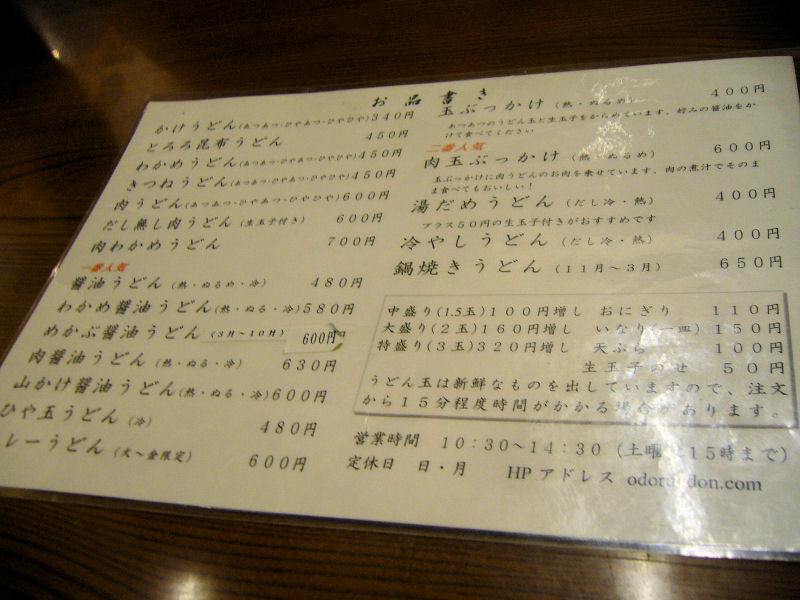 お品書き
かけうどん(あつあつ・ひやあつ・ひやひや) 340円
とろろ昆布うどん 450円
わかめうどん(あつあつ・ひやあつ・ひやひや) 450円
きつねうどん(あつあつ・ひやあつ・ひやひや) 450円
肉うどん(あつあつ・ひやあつ・ひやひや) 600円
だし無し肉うどん (生玉子付き) 600円
肉わかめうどん 700円
一番人気
醤油うどん (熱・ぬるめ・冷) 480円
わかめ醤油うどん(熱・ぬる・冷) 580円
めかぶ醤油うどん (3月～10月) 600円
肉醤油うどん (熱・ぬる・冷) 630円
山かけ醤油うどん(熱・ぬる・冷) 600円
ひや玉うどん (冷) 480円
レーうどん (火～金限定) 600円
玉ぶっかけ (熱・ぬるめ) 400円
あつあつのうどん玉と生玉子をからめています、好みの醤油をか
けて食べてください
二番人気
肉玉ぶっかけ (熱・ぬるめ) 600円
玉ぶっかけに肉うどんのお肉を乗せています、肉の煮汁でそのま
ま食べてもおいしい！
湯だめうどん (だし冷・熱) 400円
プラス50円の生玉子付きがおすすめです
冷やしうどん (だし冷・熱) 400円
鍋焼きうどん (11月～3月) 650円
中盛り(1.5玉)100円増し おにぎり 110円
大盛り(2玉)160円増し いなり(一皿) 150円
特盛り(3玉)320円増し 天ぷら 100円
生玉子のせ 50円
うどん玉は新鮮なものを出していますので、注文
から15分程度時間がかかる場合があります。
営業時間 10:30～14:30 (土曜 15時まで)
定休日 日・月 HPアドレス don.com